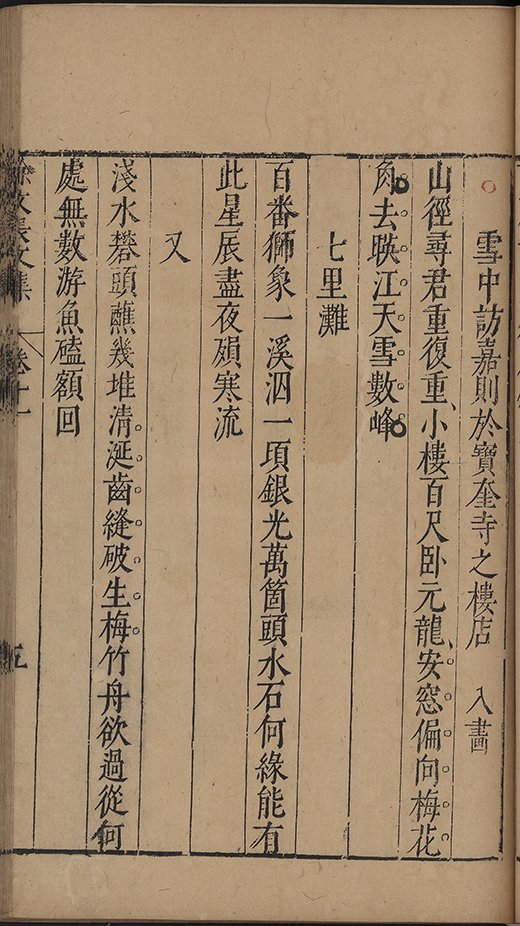 雪中訪嘉則於寶奎寺之樓店 入畵
山徑尋君重復重小樓百尺卧元龍安窓偏向梅花
角去暎江天雪數峰
七里灘
百番獅象一溪泅一項銀光萬箇頭水石何緣能有
此星辰盡夜頫寒流
又
淺水礬頭蘸幾堆清涎齒縫破生梅竹舟欲過從何
處無數游魚磕額回
徐文長文集 卷十一